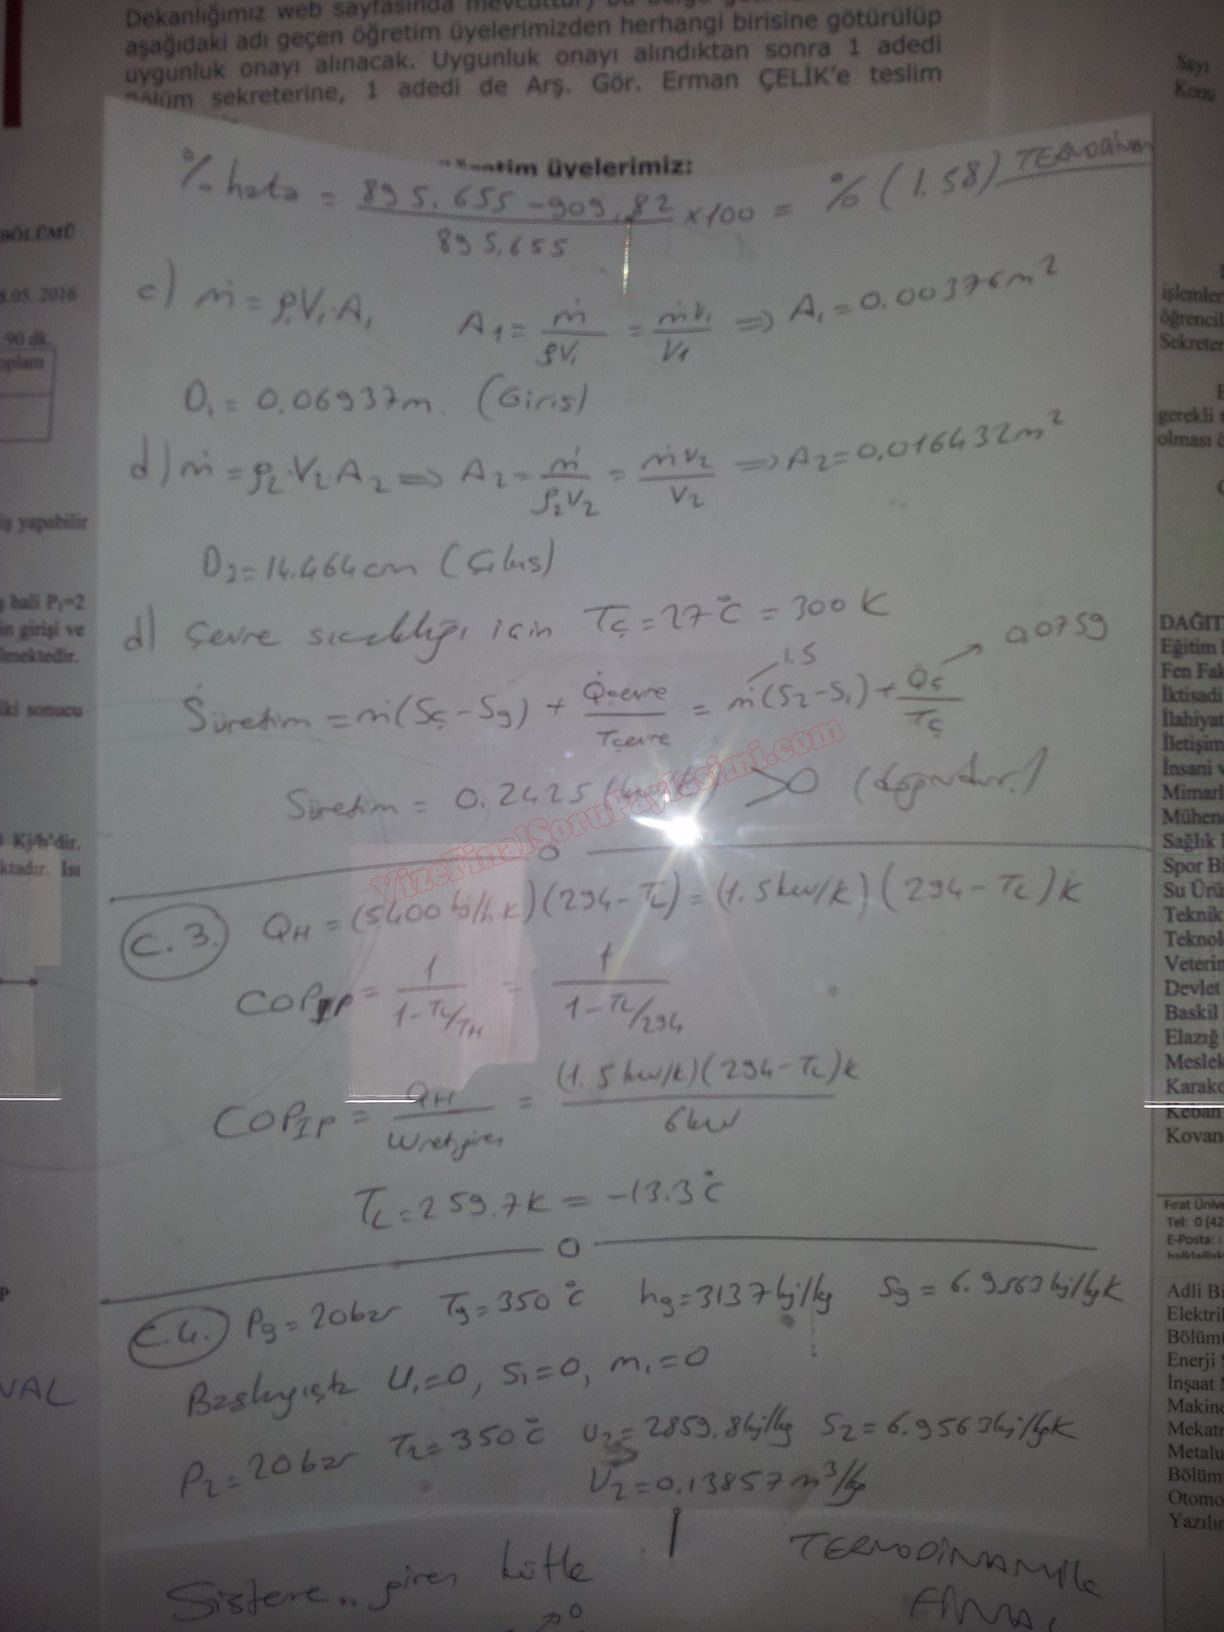 Dekanlığımız web sayfasında mevcuttur) bu belge
aşağıdaki adı geçen öğretim üyelerimizden herhangi birisine götürülüp
uygunluk onayı alınacak. Uygunluk onayı alındıktan sonra 1 adedi
Bölüm sekreterine, 1 adedi de Arş. Gör. Erman ÇELİK'e teslim
üyelerimiz:
% hata = (895,655 - 909,82) / 895,655 x100 = % (1.58) TERMODİNAM
c) ṁ = ρ₁V₁A₁ A₁ = ṁ/ρV₁ = ṁv₁/V₁ => A₁ = 0.00376 m²
D₁ = 0.06937m. (Giriş)
d) ṁ = ρ₂.V₂.A₂ => A₂ = ṁ/ρ₂V₂ = ṁv₂/V₂ => A₂ = 0,016432 m²
D₂ = 14.464 cm (Çıkış)
d) Çevre sıcaklığı için Tç = 27°C = 300 K
Ṡüretim = ṁ(Sç - Sg) + Q̇çevre/Tçevre = ṁ(S₂ - S₁) + Q̇ç/Tç
1.5
0,0759
Süretim = 0.2425 >0 (doğrudur.)
VizeFinalSoruPaylasimi.com
C.3. QH = (5400 kj/h K)(294 - TL) = (1.5 kw/K) (294 - TL) K
COPIP = 1/(1 - TL/TH) = 1/(1 - TL/294)
COPIP = QH/Wnet,giren = (1.5 kw/K)(294 - TL)K / 6kw
TL = 259.7K = -13.3°C
C.4. Pg = 20 bar Tg = 350°C hg = 3137 kj/kg Sg = 6.9563 kj/kgK
Başlangıçta U₁=0, S₁=0, m₁=0
P₂ = 20 bar T₂ = 350°C U₂ = 2859.8 kj/kg S₂ = 6.9563 kj/kgK
V₂ = 0,13857 m³/kg
Sisteme giren kütle
TERMODİNAMİK
FİNAL
BÖLÜMÜ
8.05. 2016
90 dk.
oplam
iş yapabilir
hali P₁=2
in girişi ve
lmektedir.
iki sonucu
Kj/h'dir.
ktadır. Isı
P
VAL
Sayı
Konu
işlemler
öğrencil
Sekreter
gerekli
olması
DAĞIT
Eğitim
Fen Fak
İktisadi
İlahiyat
İletişim
İnsani v
Mimarl
Mühen
Sağlık
Spor B
Su Ürü
Teknik
Teknol
Veterin
Devlet
Baskil
Elazığ
Meslek
Karako
Keban
Kovan
Fırat Üniv
Tel: 0 (42
E-Posta:
Adli Bi
Elektri
Bölüm
Enerji
İnşaat
Makine
Mekatr
Metalu
Bölüm
Otomo
Yazılır